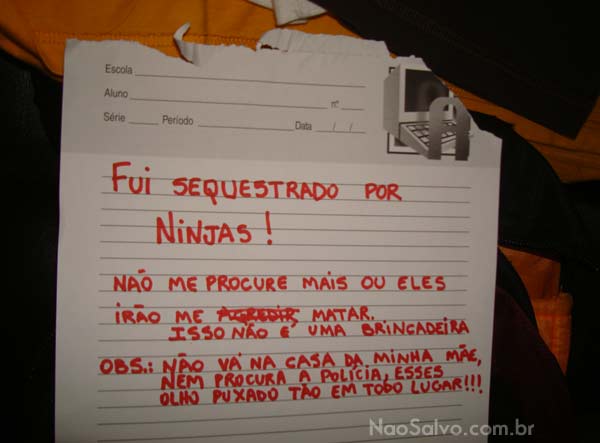 Escola
Aluno nº
Série Período Data / /
FUI SEQUESTRADO POR
NINJAS!
NAÕ ME PROCURE MAIS OU ELES
IRÃO ME AGREDIR MATAR.
ISSO NÃO É UMA BRINCADEIRA
OBS.: NÃO VÁ NA CASA DA MINHA MÃE,
NEM PROCURA A POLÍCIA, ESSES
OLHO PUXADO TÃO EM TODO LUGAR!!!
NaoSalvo.com.br